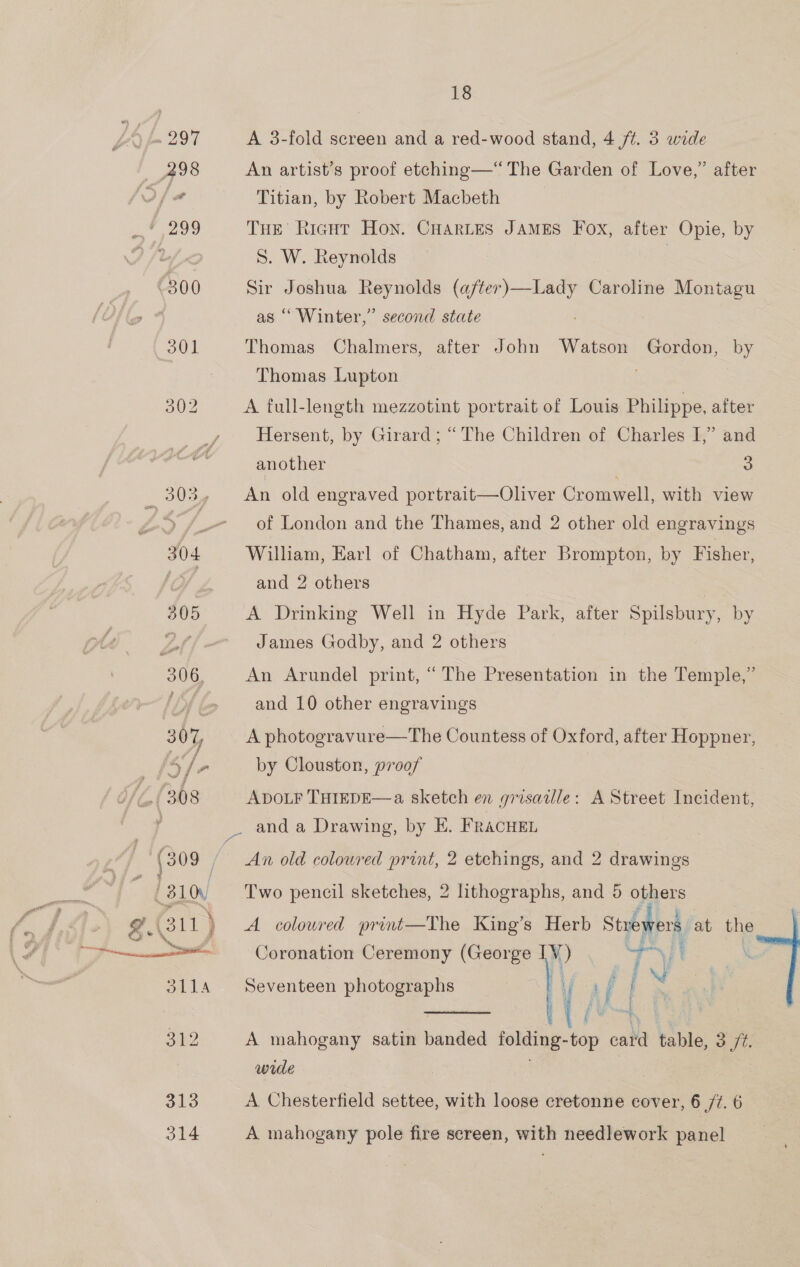 18
297 A 3-fold screen and a red-wood stand, 4 ft. 3 wide
298 An artist's proof etching—“The Garden of Love,” after
Titian, by Robert Macbeth
299 THE RIGHT HON. CHARLES JAMES FOX, after Opie, by
S. W. Reynolds
300 Sir Joshua Reynolds (after)—Lady Caroline Montagu
as “Winter,” second state
301 Thomas Chalmers, after John Watson Gordon, by
Thomas Lupton
302 A full-length mezzotint portrait of Louis Philippe, after
Hersent, by Girard; “The Children of Charles I,” and
another 3
303 An old engraved portrait—Oliver Cromwell, with view
of London and the Thames, and 2 other old engravings
304 William, Earl of Chatham, after Brompton, by Fisher,
and 2 others
305 A Drinking Well in Hyde Park, after Spilsbury, by
James Godby, and 2 others
306 An Arundel print, “The Presentation in the Temple,”
and 10 other engravings
307 A photogravure—The Countess of Oxford, after Hoppner,
by Clouston, proof
308 ADOLF THIEDE—a sketch en grisaille: A Street Incident,
and a Drawing, by E. FRACHEL
309 An old coloured print, 2 etchings, and 2 drawings
310 Two pencil sketches, 2 lithographs, and 5 others
311 A coloured print—The King's Herb Strewers at the
Coronation Ceremony (George IV)
311A Seventeen photographs
312 A mahogany satin banded folding-top card table, 3 ft.
wide
313 A Chesterfield settee, with loose cretonne cover, 6 ft. 6
314 A mahogany pole fire screen, with needlework panel